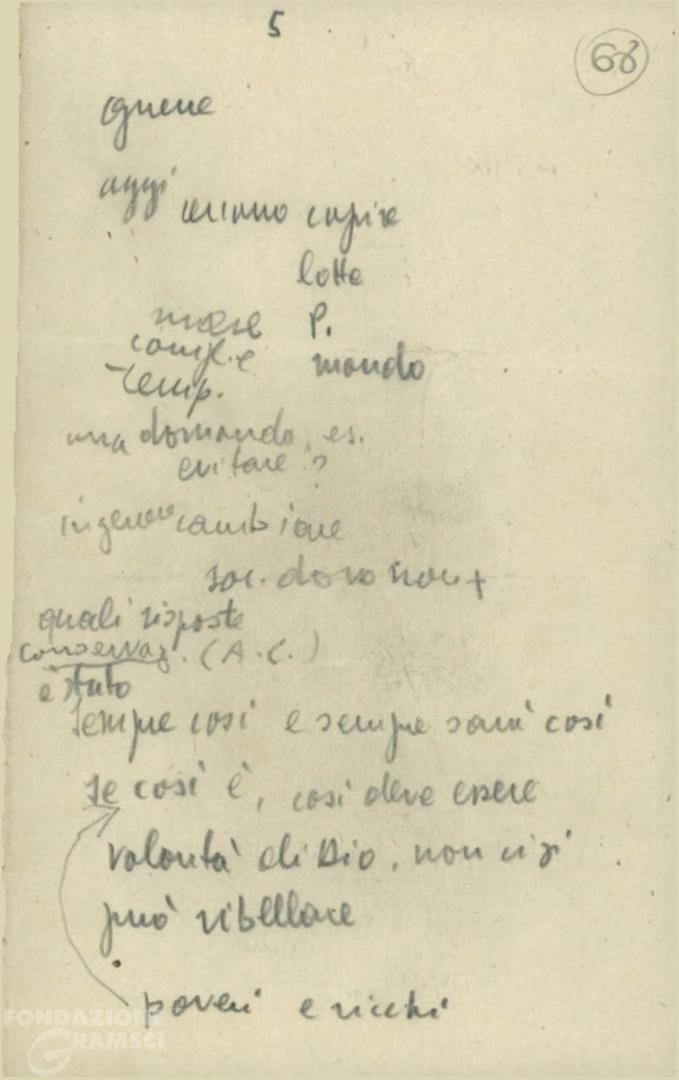 5
68
oggi
capire
lotte
P.
mondo
temp.
una domanda, es.
evitare?
cambiare
soc. dove non +
quali risposte
conservaz. (A.C.)
è stato
sempre così e sempre sarà così
se così è, così deve essere
volontà di Dio, non ci si
può ribellare
poveri e ricchi
FONDAZIONE
GRAMSCI